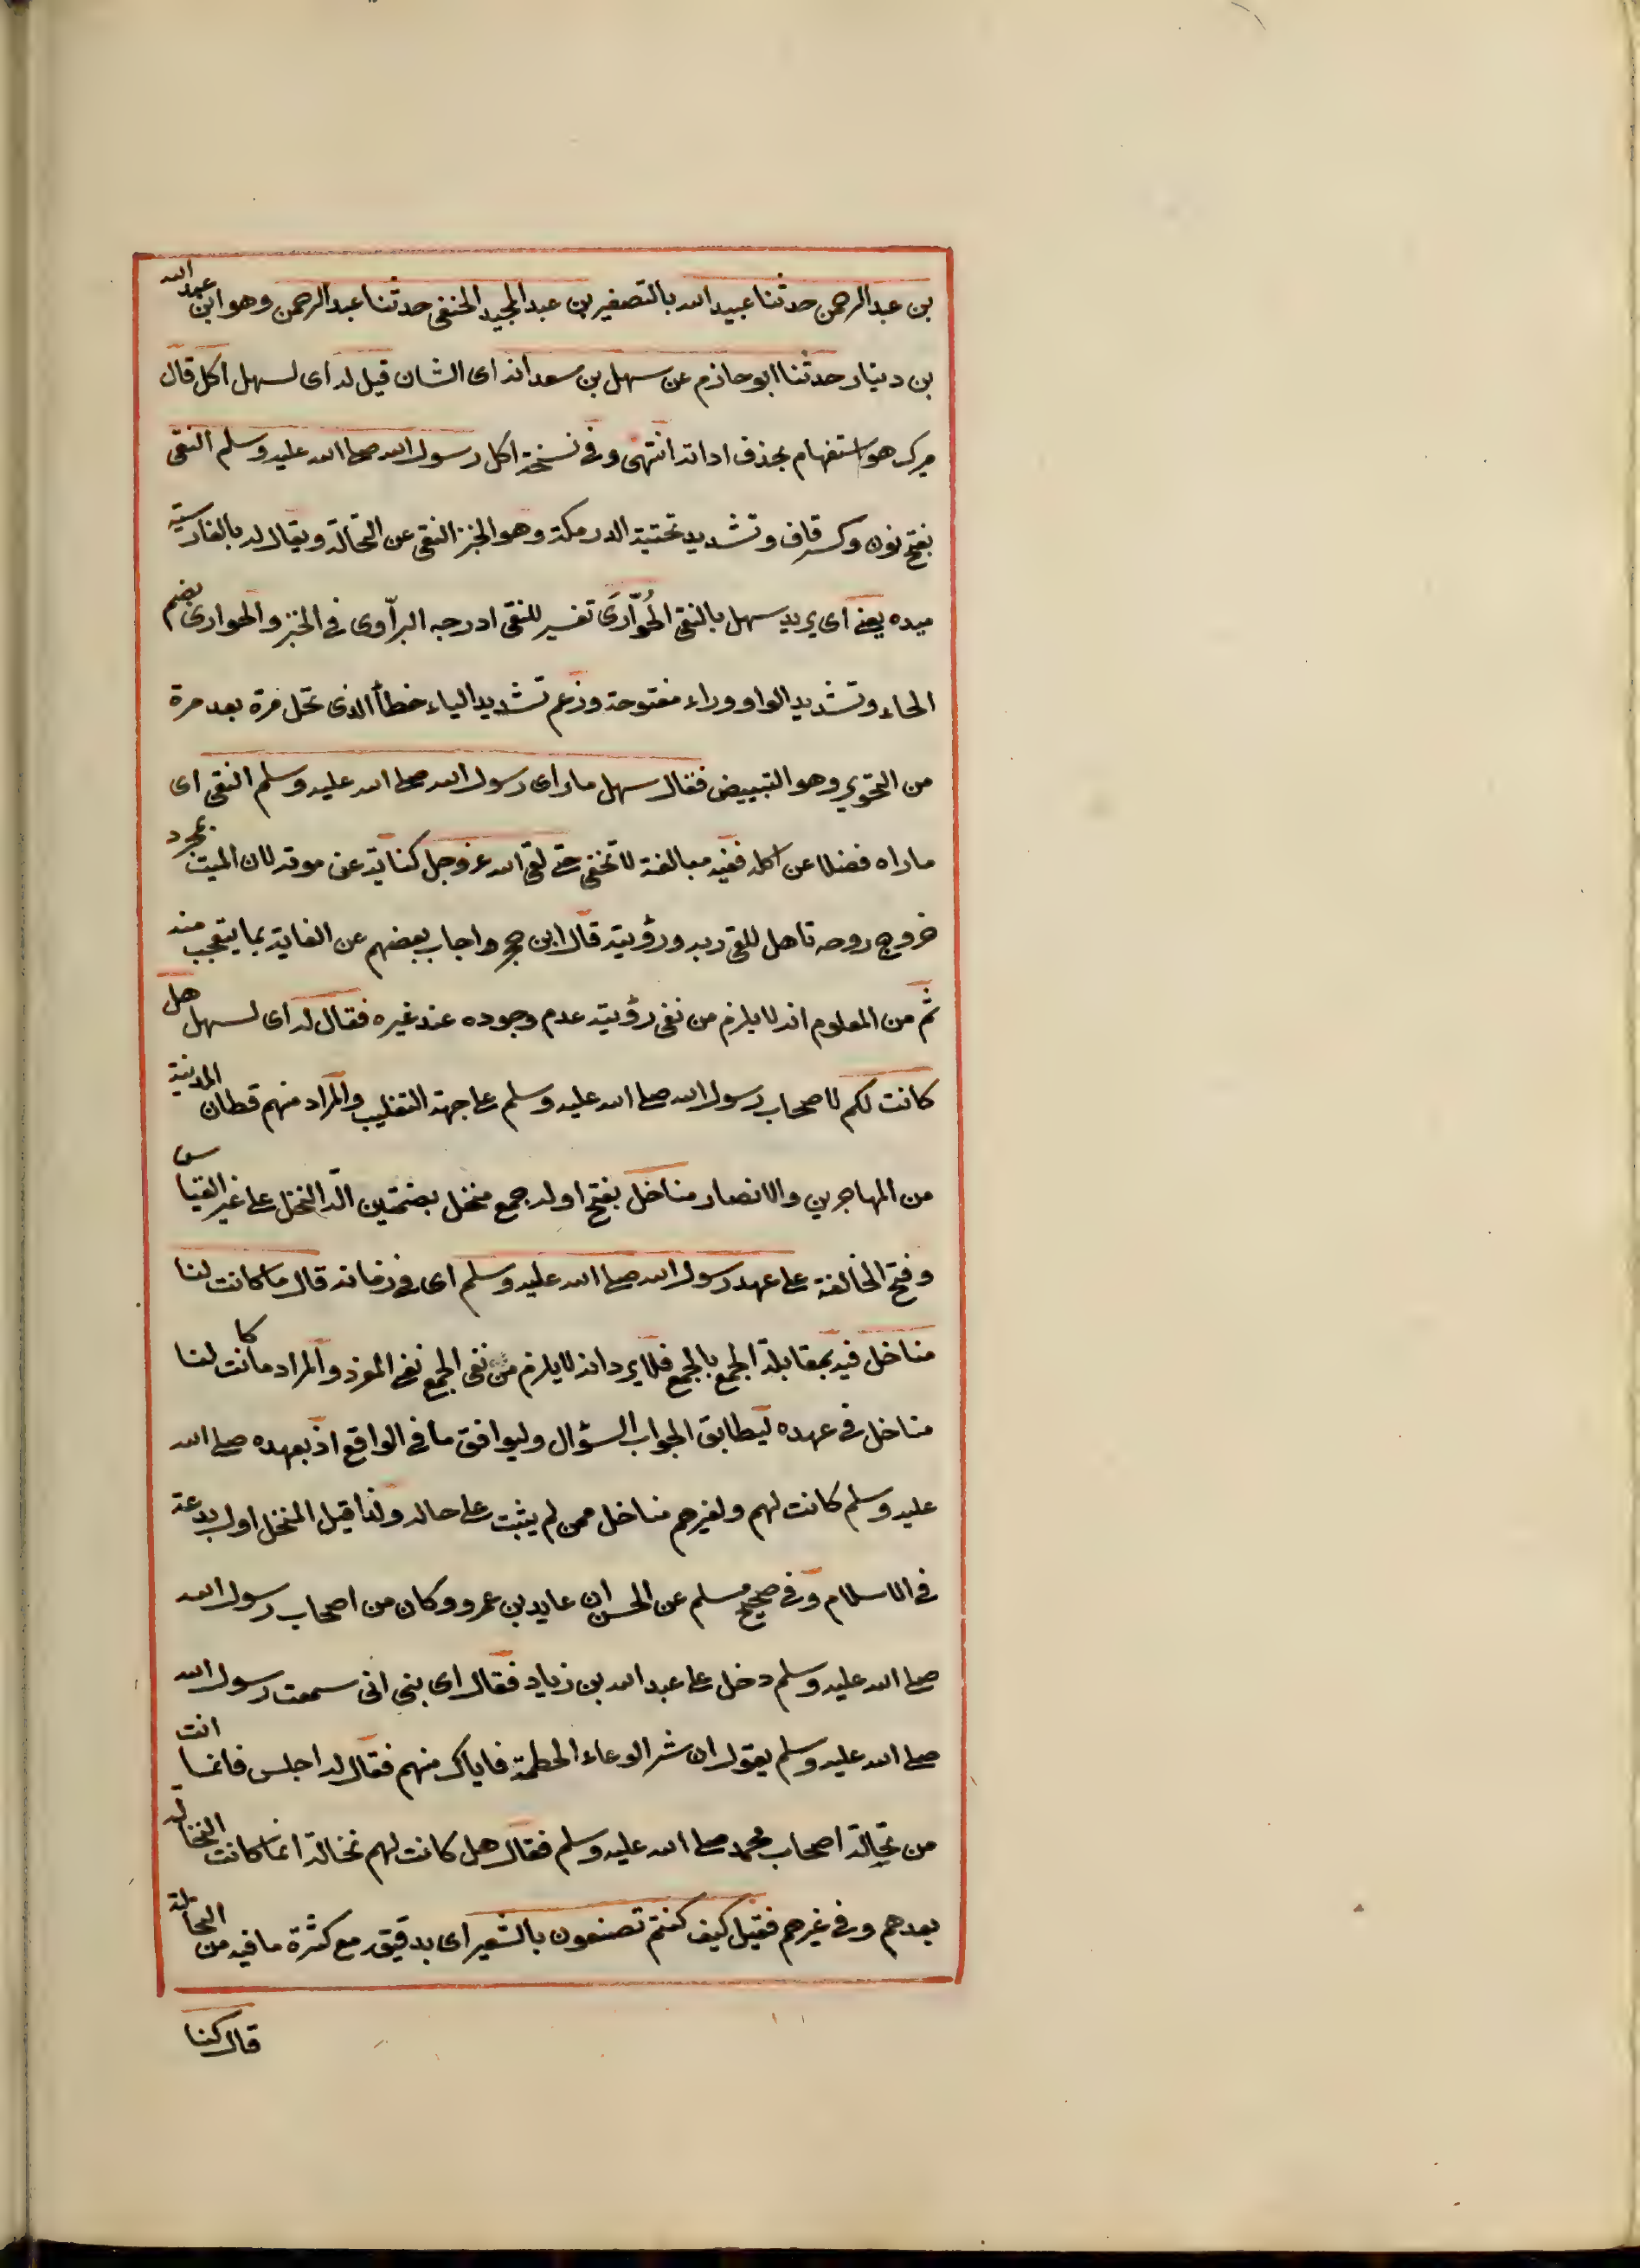 بن عبدالرحمن حدثنا عبيدالله بالتصغير بن عبدالمجيد الحنفى حدثنا عبدالرحمن وهو ابن عبدالله
بن دينار حدثنا ابوحازم عن سهل بن سعد انه اى الشان قيل له اى لسهل اكل قال
ميرك هو استفهام بحذف اداته انتهى وفى نسخة اكل رسول الله صلى الله عليه وسلم النقى
بفتح نون وكسر قاف وتشديد تحتية الدرمكة وهو الخبز النقى عن النخالة ويقال له بالفارسية
ميده يعنى اى يريد سهل بالنقى الحُوَّارَى تفسير للنقى ادرجه الراوى فى الخبز والحوارى بضم
الحاء وتشديد الواو وراء مفتوحة وزعم تشديد الياء خطأ الذى نخل مرة بعد مرة
من التحوير وهو التبييض فقال سهل ما راى رسول الله صلى الله عليه وسلم النقى اى
ما راه فضلا عن اكله ففيه مبالغة لا تخفى حتى لقى الله عز وجل كناية عن موته لان الميت بمجرد
خروج روحه تاهل للقى ربه ورؤيته قال ابن حجر واجاب بعضهم عن الغاية بما يتعجب منه
ثم من المعلوم انه لا يلزم من نفى رؤيته عدم وجوده عند غيره فقال له اى لسهل هل
كانت لكم لاصحاب رسول الله صلى الله عليه وسلم على جهة التغليب والمراد منهم قطان المدينة
من المهاجرين والانصار مناخل بفتح اوله جمع منخل بضمتين الة النخل على غير القياس
وفتح الخا لغة على عهد رسول الله صلى الله عليه وسلم اى فى زمانه قال ما كانت لنا
مناخل فيه بمقابلة الجمع بالجمع فلا يرد انه لا يلزم من نفى الجمع نفى المفرد والمراد ما كانت لنا
مناخل فى عهده ليطابق الجواب السؤال وليوافق ما فى الواقع اذ بعهده صلى الله
عليه وسلم كانت لهم ولغيرهم مناخل ممن لم يثبت على حاله ولذا قيل المنخل اول بدعة
فى الاسلام وفى صحيح مسلم عن الحسن ان عايد بن عمرو وكان من اصحاب رسول الله
صلى الله عليه وسلم دخل على عبد الله بن زياد فقال اى بنى انى سمعت رسول الله
صلى الله عليه وسلم يقول ان شر الوعاء الحطمة فاياك منهم فقال له اجلس فانما انت
من نخالة اصحاب محمد صلى الله عليه وسلم فقال هل كانت لهم نخالة انما كانت النخالة
بعدهم وفى غيرهم فقيل كيف كنتم تصنعون بالشعير اى بدقيقه مع كثرة ما فيه من النخالة
قال كنا